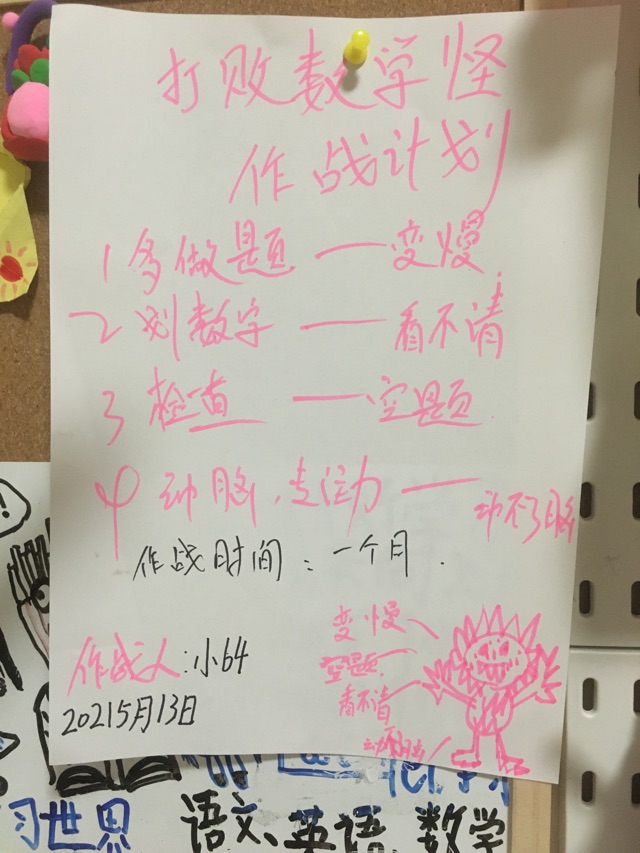 打败数学怪
作战计划
1 多做题 — 变慢
2 划数字 — 看不清
3 检查 — 空题
4 动脑、运动 — 动不了脑
作战时间：一个月.
作战人：小64
2021 5月13日
变慢
空题
看不清
习世界
语文、英语、数学